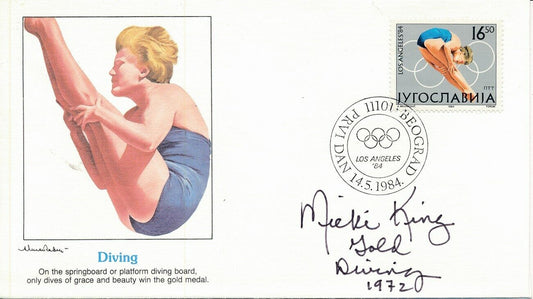 LOS ANGELES '84
16.50
ПТТ
ЈУГОСЛАВИЈА
PRVI DAN 11101 BEOGRAD
LOS ANGELES
'84
14.5.1984.
Micki King
Gold
Diving
1972
Diving
On the springboard or platform diving board,
only dives of grace and beauty win the gold medal.